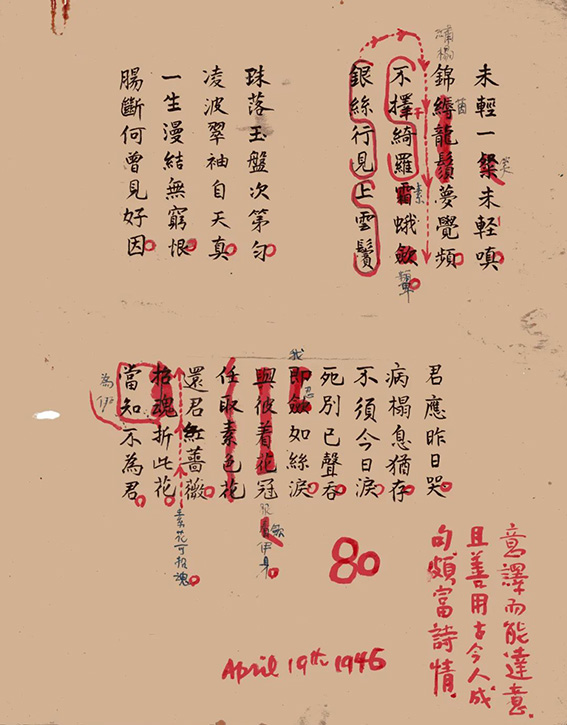 繡榻
未輕一粲未輕嗔
笑
錦縟龍鬚夢覺頻
茵
不擇綺羅霜蛾斂
素
銀絲行見上雲鬢
珠落玉盤次第勻
凌波翠袖自天真
一生漫結無窮恨
腸斷何曾見好因
君應昨日哭
病榻息猶存
不須今日淚
死別已聲吞
我
即斂如絲淚
忍
與彼着花冠
任取素色花
還君紅薔薇
素花可招魂
招魂折此花
當知不為君
為伊
意譯而能達意.
且善用古今人成
句頗富詩情.
80
April 19th 1946